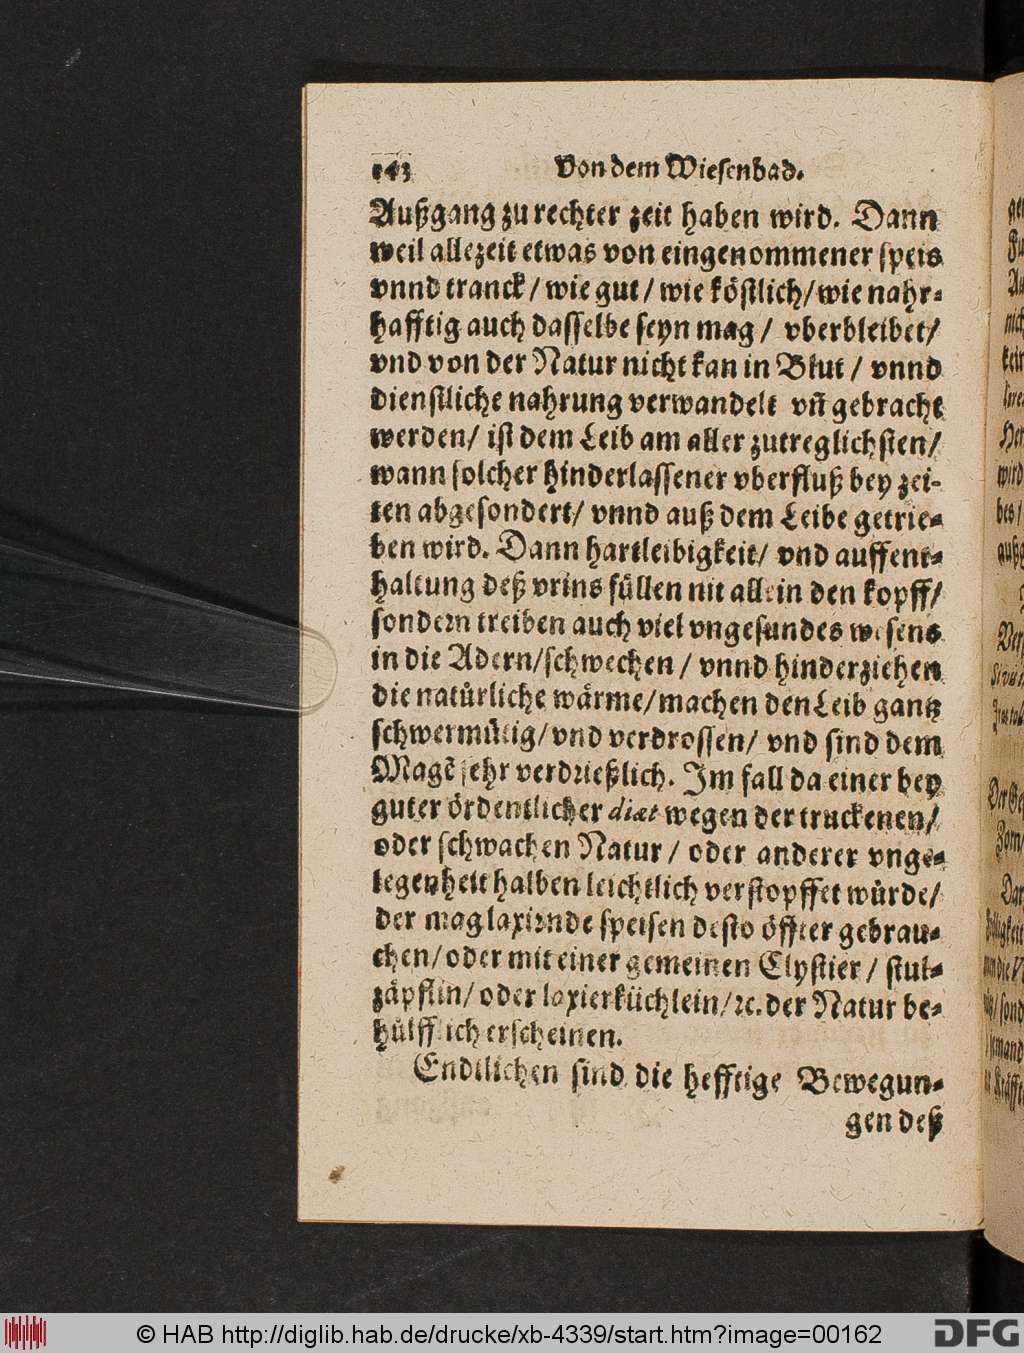 143 Von dem Wiesenbad.
Außgang zu rechter zeit haben wird. Dann
weil allezeit etwas von eingenommener speis
vnnd tranck / wie gut / wie köstlich / wie nahr-
hafftig auch dasselbe seyn mag / vberbleibet /
vnd von der Natur nicht kan in Blut / vnnd
dienstliche nahrung verwandelt vñ gebracht
werden / ist dem Leib am aller zutreglichsten /
wann solcher hinderlassener vberfluß bey zei-
ten abgesondert / vnnd auß dem Leibe getrie-
ben wird. Dann hartleibigkeit / vnd auffent-
haltung deß vrins füllen nit allein den kopff /
sondern treiben auch viel vngesundes wesens
in die Adern / schwechen / vnnd hinderziehen
die natürliche wärme / machen den Leib gantz
schwermütig / vnd verdrossen / vnd sind dem
Magē sehr verdrießlich. Im fall da einer bey
guter ördentlicher diæt wegen der truckenen /
oder schwachen Natur / oder anderer vnge-
legenheit halben leichtlich verstopffet würde /
der mag laxirnde speisen desto öffter gebrau-
chen / oder mit einer gemeinen Clystier / stul-
zäpflin / oder laxierküchlein / ꝛc. der Natur be-
hülfflich erscheinen.
Endtlichen sind die hefftige Bewegun-
gen deß
© HAB http://diglib.hab.de/drucke/xb-4339/start.htm?image=00162
DFG